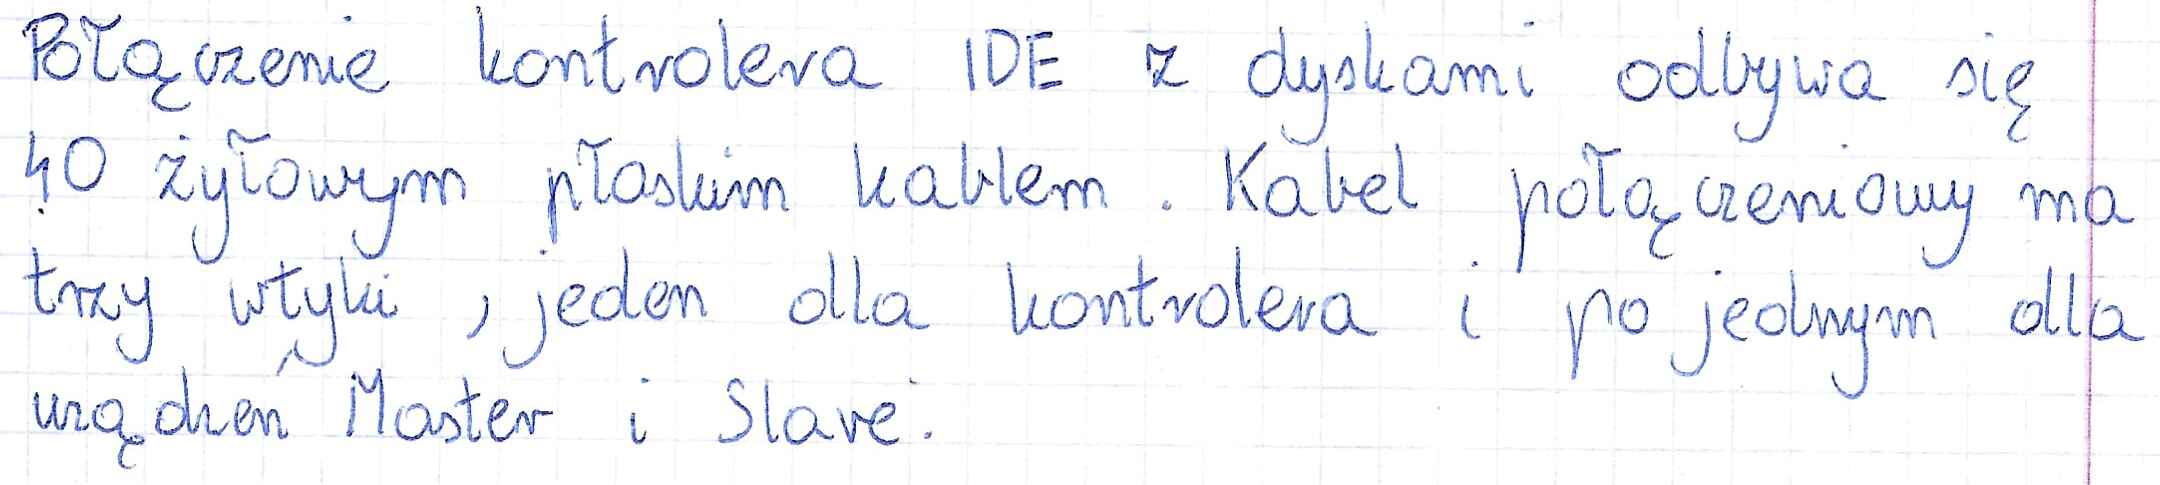 Połączenie kontrolera IDE z dyskami odbywa się
40 żyłowym płaskim kablem. Kabel połączeniowy ma
trzy wtyki, jeden dla kontrolera i po jednym dla
urządzeń Master i Slave.